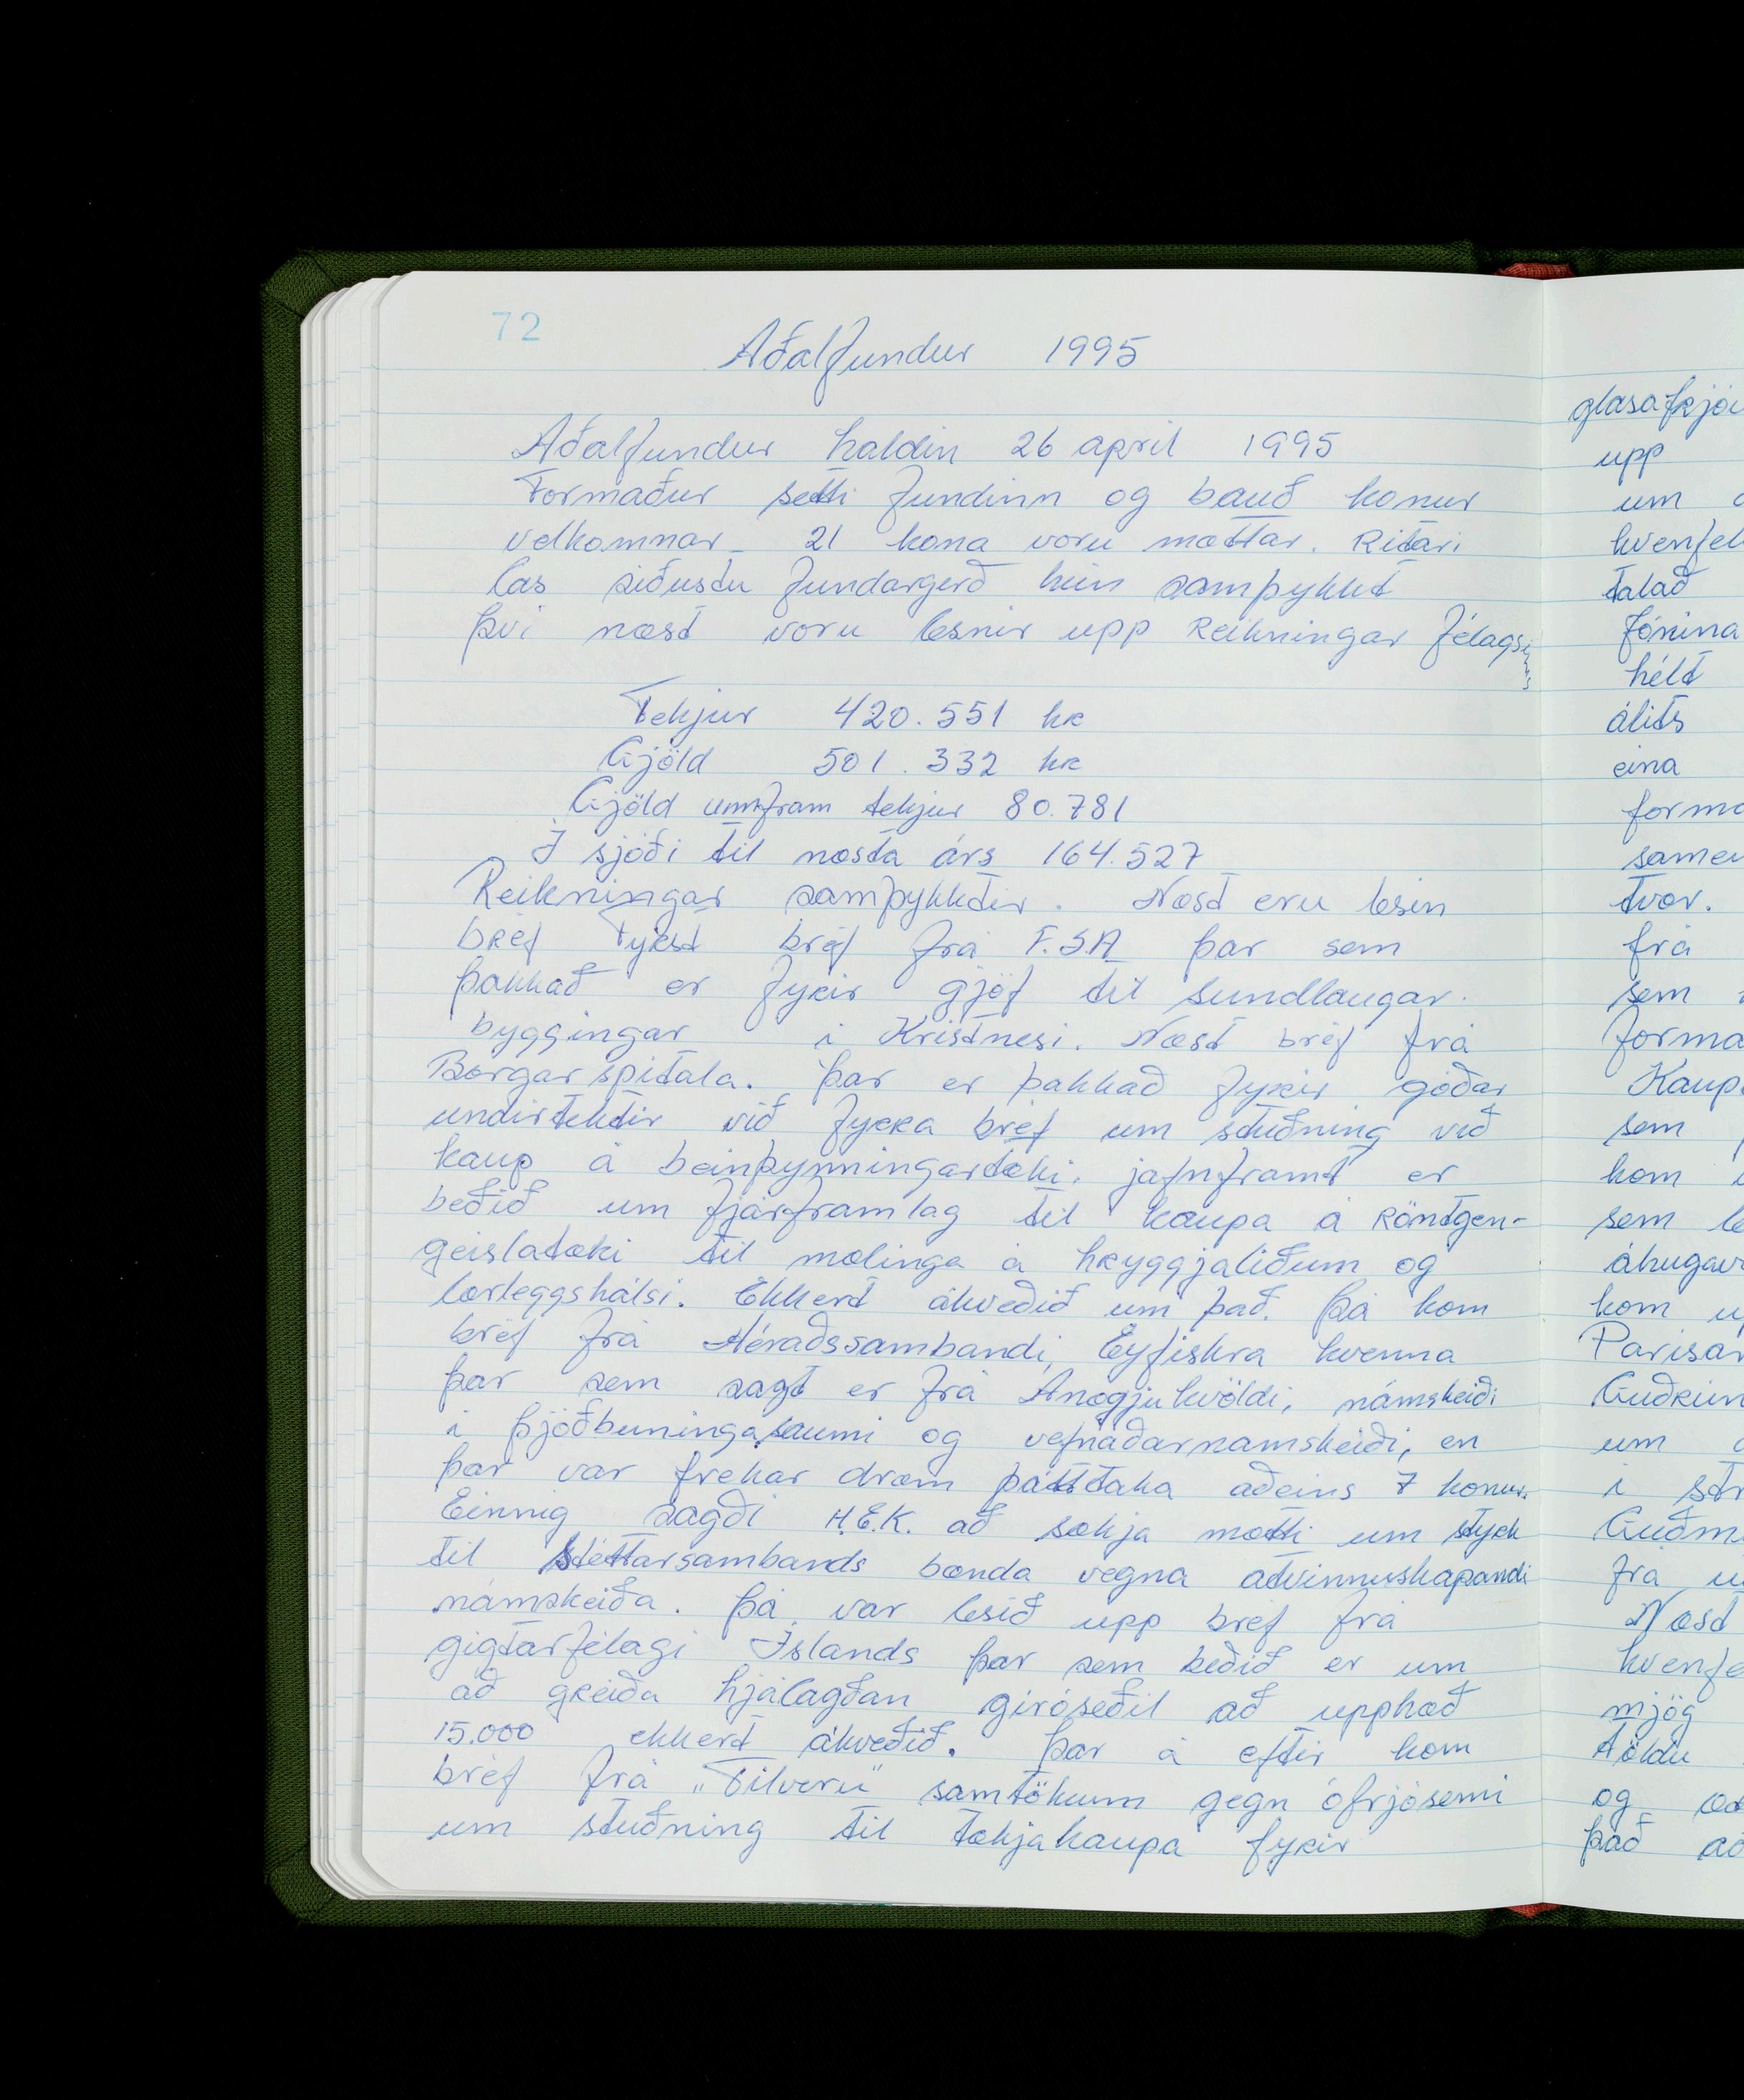 72
Aðalfundur 1995
Aðalfundur haldin 26 april 1995
Formaður setti fundinn og bauð konur
velkomnar_ 21 kona voru mættar. Ritari
las siðustu fundargerð hún samþykkt
Þvi næst voru lesnir upp Reikningar félagsins
Tekjur 420.551 kr
Gjöld 501.332 kr
Gjöld umfram tekjur 80.781
I sjóði til næsta árs 164.527
Reikningar samþykktir. Næst eru lesin
bréf Fyrst bréf frá F.S.A þar sem
þakkað er fyrir gjöf til sundlaugar.
byggingar i Kristnesi. Næst bréf frá
Borgarspitala. Þar er þakkað fyrir góðar
undirtektir við fyrra bréf um stuðning við
kaup á beinþynningartæki. jafnframt er
beðið um fjárframlag til kaupa á Röntgen-
geislatæki til mælinga á hryggjaliðum og
lærleggshálsi. Ekkert ákveðið um það. Þá kom
bréf frá Héraðssambandi, Eyfiskra kvenna
þar sem sagt er frá Ánægjukvöldi, námskeiði
i þjóðbuningasaumi og vefnaðarnamskeiði, en
þar var frekar dræm þátttaka aðeins 7 konur.
Einnig sagði H.E.K. að sækja mætti um styrk
til Stéttarsambands bænda vegna atvinnuskapandi
námskeiða. Þá var lesið upp bréf frá
gigtarfélagi Íslands þar sem beðið er um
að greiða hjálagðan giróseðil að upphæð
15.000 ekkert ákveðið. Þar á eftir kom
bréf frá „Tilveru" samtökum gegn ófrjósemi
um stuðning til tækjakaupa fyrir
upp
um
talað
Jónina
hélt
álits
eina
tvær.
frá
sem
sem
kom
sem
kom
um
i
frá
Næst
mjög
töldu
og
það